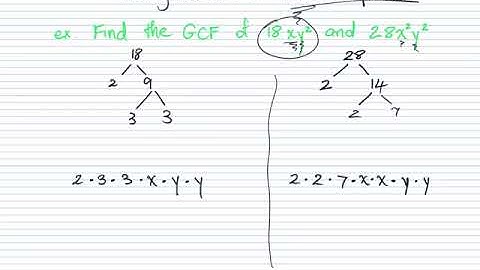 ex. Find the GCF of 18xy² and 28x²y²
18 28
2 9 2 14
3 3 2 7
2·3·3·x·y·y 2·2·7·x·x·y·y